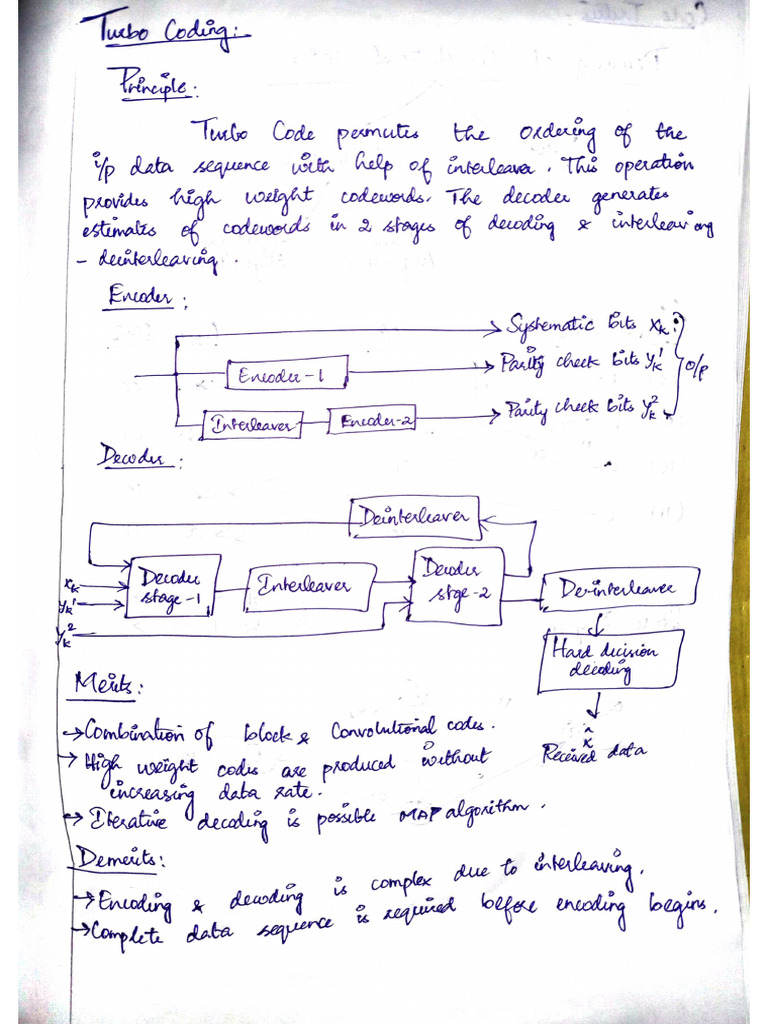 Turbo Coding:
Principle:
Turbo Code permutes the ordering of the
i/p data sequence with help of interleaver. This operation
provides high weight codewords. The decoder generates
estimates of codewords in 2 stages of decoding & interleaving
- deinterleaving.
Encoder:
Systematic bits xₖ
Encoder-1
Parity check bits yₖ¹
o/p
Interleaver
Encoder-2
Parity check bits yₖ²
Decoder:
Deinterleaver
xₖ
yₖ¹
yₖ²
Decoder
stage-1
Interleaver
Decoder
stge-2
De-interleaver
Hard decision
decoding
x̂
Received data
Merits:
→ Combination of block & Convolutional codes.
→ High weight codes are produced without
increasing data rate.
→ Iterative decoding is possible MAP algorithm.
Demerits:
→ Encoding & decoding is complex due to interleaving.
→ Complete data sequence is required before encoding begins.